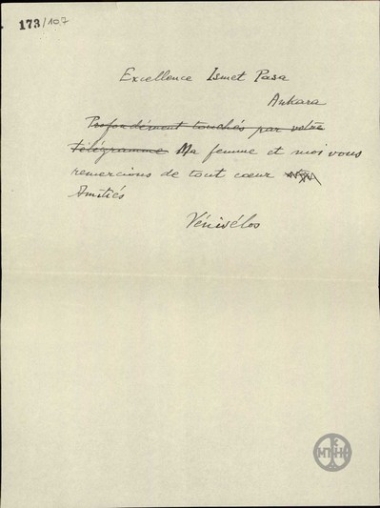 173/107
Excellence Ismet Pasa
Ankara
Profondément touchés par votre
télégramme Ma femme et moi vous
remercions de tout cœur
Amitiés
Vénisélos